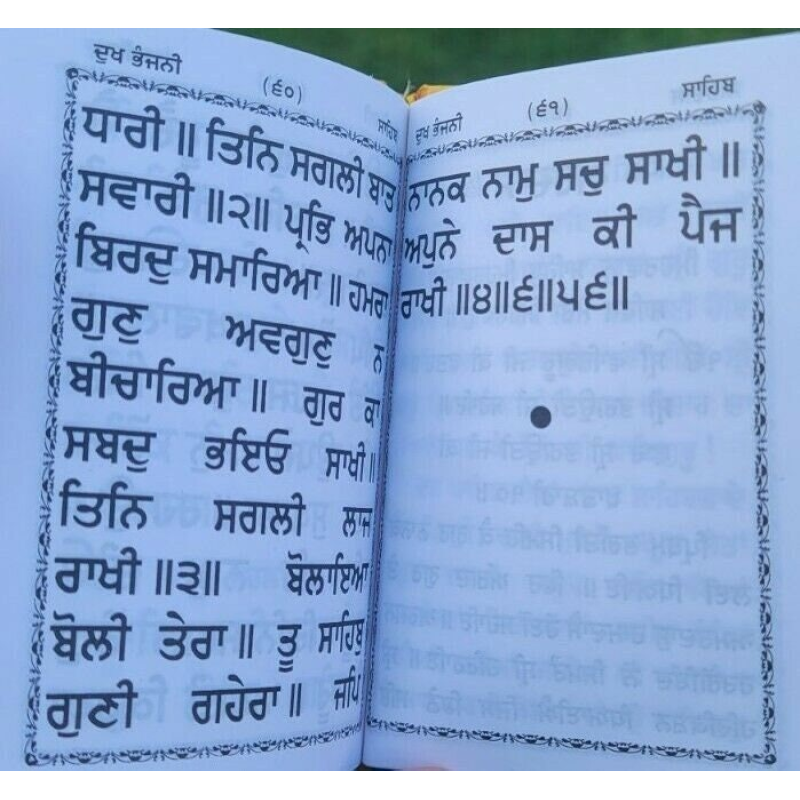 ਦੁਖ ਭੰਜਨੀ (੬੦) ਸਾਹਿਬ
ਧਾਰੀ ॥ ਤਿਨਿ ਸਗਲੀ ਬਾਤ
ਸਵਾਰੀ ॥੨॥ ਪ੍ਰਭਿ ਅਪਨਾ
ਬਿਰਦੁ ਸਮਾਰਿਆ ॥ ਹਮਰਾ
ਗੁਣੁ ਅਵਗੁਣੁ ਨ
ਬੀਚਾਰਿਆ ॥ ਗੁਰ ਕਾ
ਸਬਦੁ ਭਇਓ ਸਾਖੀ ॥
ਤਿਨਿ ਸਗਲੀ ਲਾਜ
ਰਾਖੀ ॥੩॥ ਬੋਲਾਇਆ
ਬੋਲੀ ਤੇਰਾ ॥ ਤੂ ਸਾਹਿਬੁ
ਗੁਣੀ ਗਹੇਰਾ ॥ ਜਪਿ
ਦੁਖ ਭੰਜਨੀ (੬੧) ਸਾਹਿਬ
ਨਾਨਕ ਨਾਮੁ ਸਚੁ ਸਾਖੀ ॥
ਅਪੁਨੇ ਦਾਸ ਕੀ ਪੈਜ
ਰਾਖੀ ॥੪॥੬॥੫੬॥